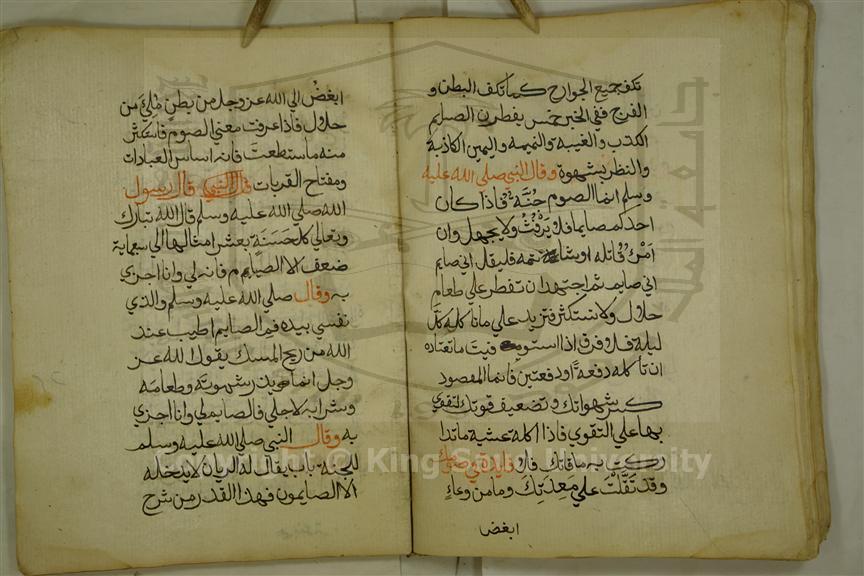 تكف جميع الجوارح كما تكف البطن و
الفرج ففي الخبر خمس يفطرن الصايم
الكذب والغيبة والنميمه واليمين الكاذبة
والنظر بشهوة وقال النبي صلي الله عليه
وسلم انما الصوم جُنَّة فاذا كان
احدكم صايما فلا يَرْفُثْ ولا يجهل وان
امْرُؤٌ قاتله او شاتمه فليقل اني صايم
اني صايم ثم اجتهد ان تفطر علي طعام
حلال ولا تستكثر فتزيد علي ما تاكله كل
ليلة فلا فرق اذا استوفيت ما تعتاده
ان تأكله دفعة أو دفعتين فانما المقصود
كسر شهواتك وتضعيف قوتك لتقوي
بها علي التقوي فاذا اكلة عشية ما تدا
ركت به ما فاتك فلا فايدة في صومك
وقد ثَقُلَتْ علي مَعِدَتِكَ وما من وعاءٍ
ابغض
ابغضُ الي الله عز وجل من بطنٍ مُلِئَ من
حلال فاذا عرفت معني الصوم فاستكثر
منه ما ستطعت فانه اساس العبادات
ومفتاح القربات قال النبي قال رسول
الله صلي الله عليه وسلم قال الله تبارك
وتعالي كل حَسَنَةٍ بعشر امثالها الي سبعماية
ضعف الا الصايم فانه لي وانا اجزي
به وقال صلي الله عليه وسلم والذي
نفسي بيده فم الصايم اطيب عند
الله من ريح المسك يقول الله عز
وجل انما يذر شهوته وطعامه
وشرابه لاجلي فالصايم لي وانا اجزي
به وقال النبي صلي الله عليه وسلم
للجنة باب يقال له الريان لا يدخله
الا الصايمون فهذا القدر من شرح
Copyright © King Saud University